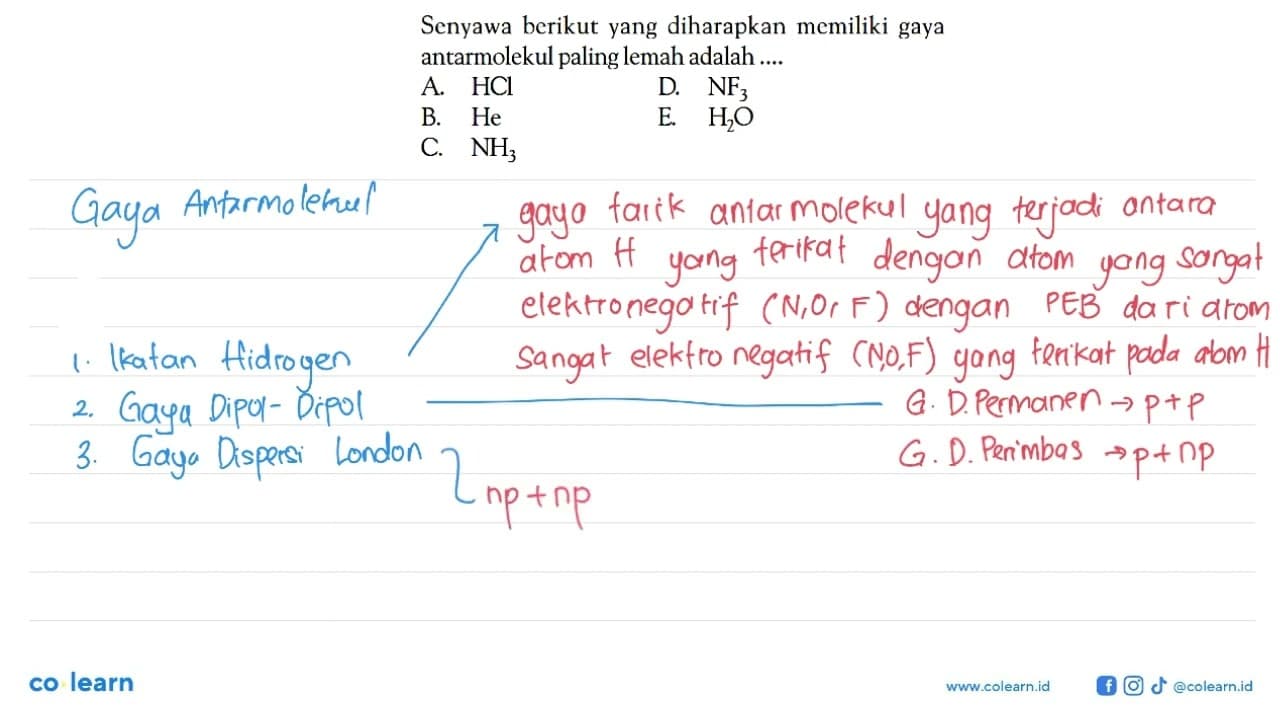 Senyawa berikut yang diharapkan memiliki gaya
antarmolekul paling lemah adalah ....
A. HCl D. NF₃
B. He E. H₂O
C. NH₃
Gaya Antarmolekul
gaya tarik antarmolekul yang terjadi antara
atom H yang terikat dengan atom yang sangat
elektronegatif (N,O, F) dengan PEB dari atom
sangat elektronegatif (N,O,F) yang terikat pada atom H
1. Ikatan Hidrogen
2. Gaya Dipol-Dipol
G. D. Permanen → p+p
3. Gaya Dispersi London
G. D. Perimbas → p+np
np+np
co learn
www.colearn.id
@colearn.id